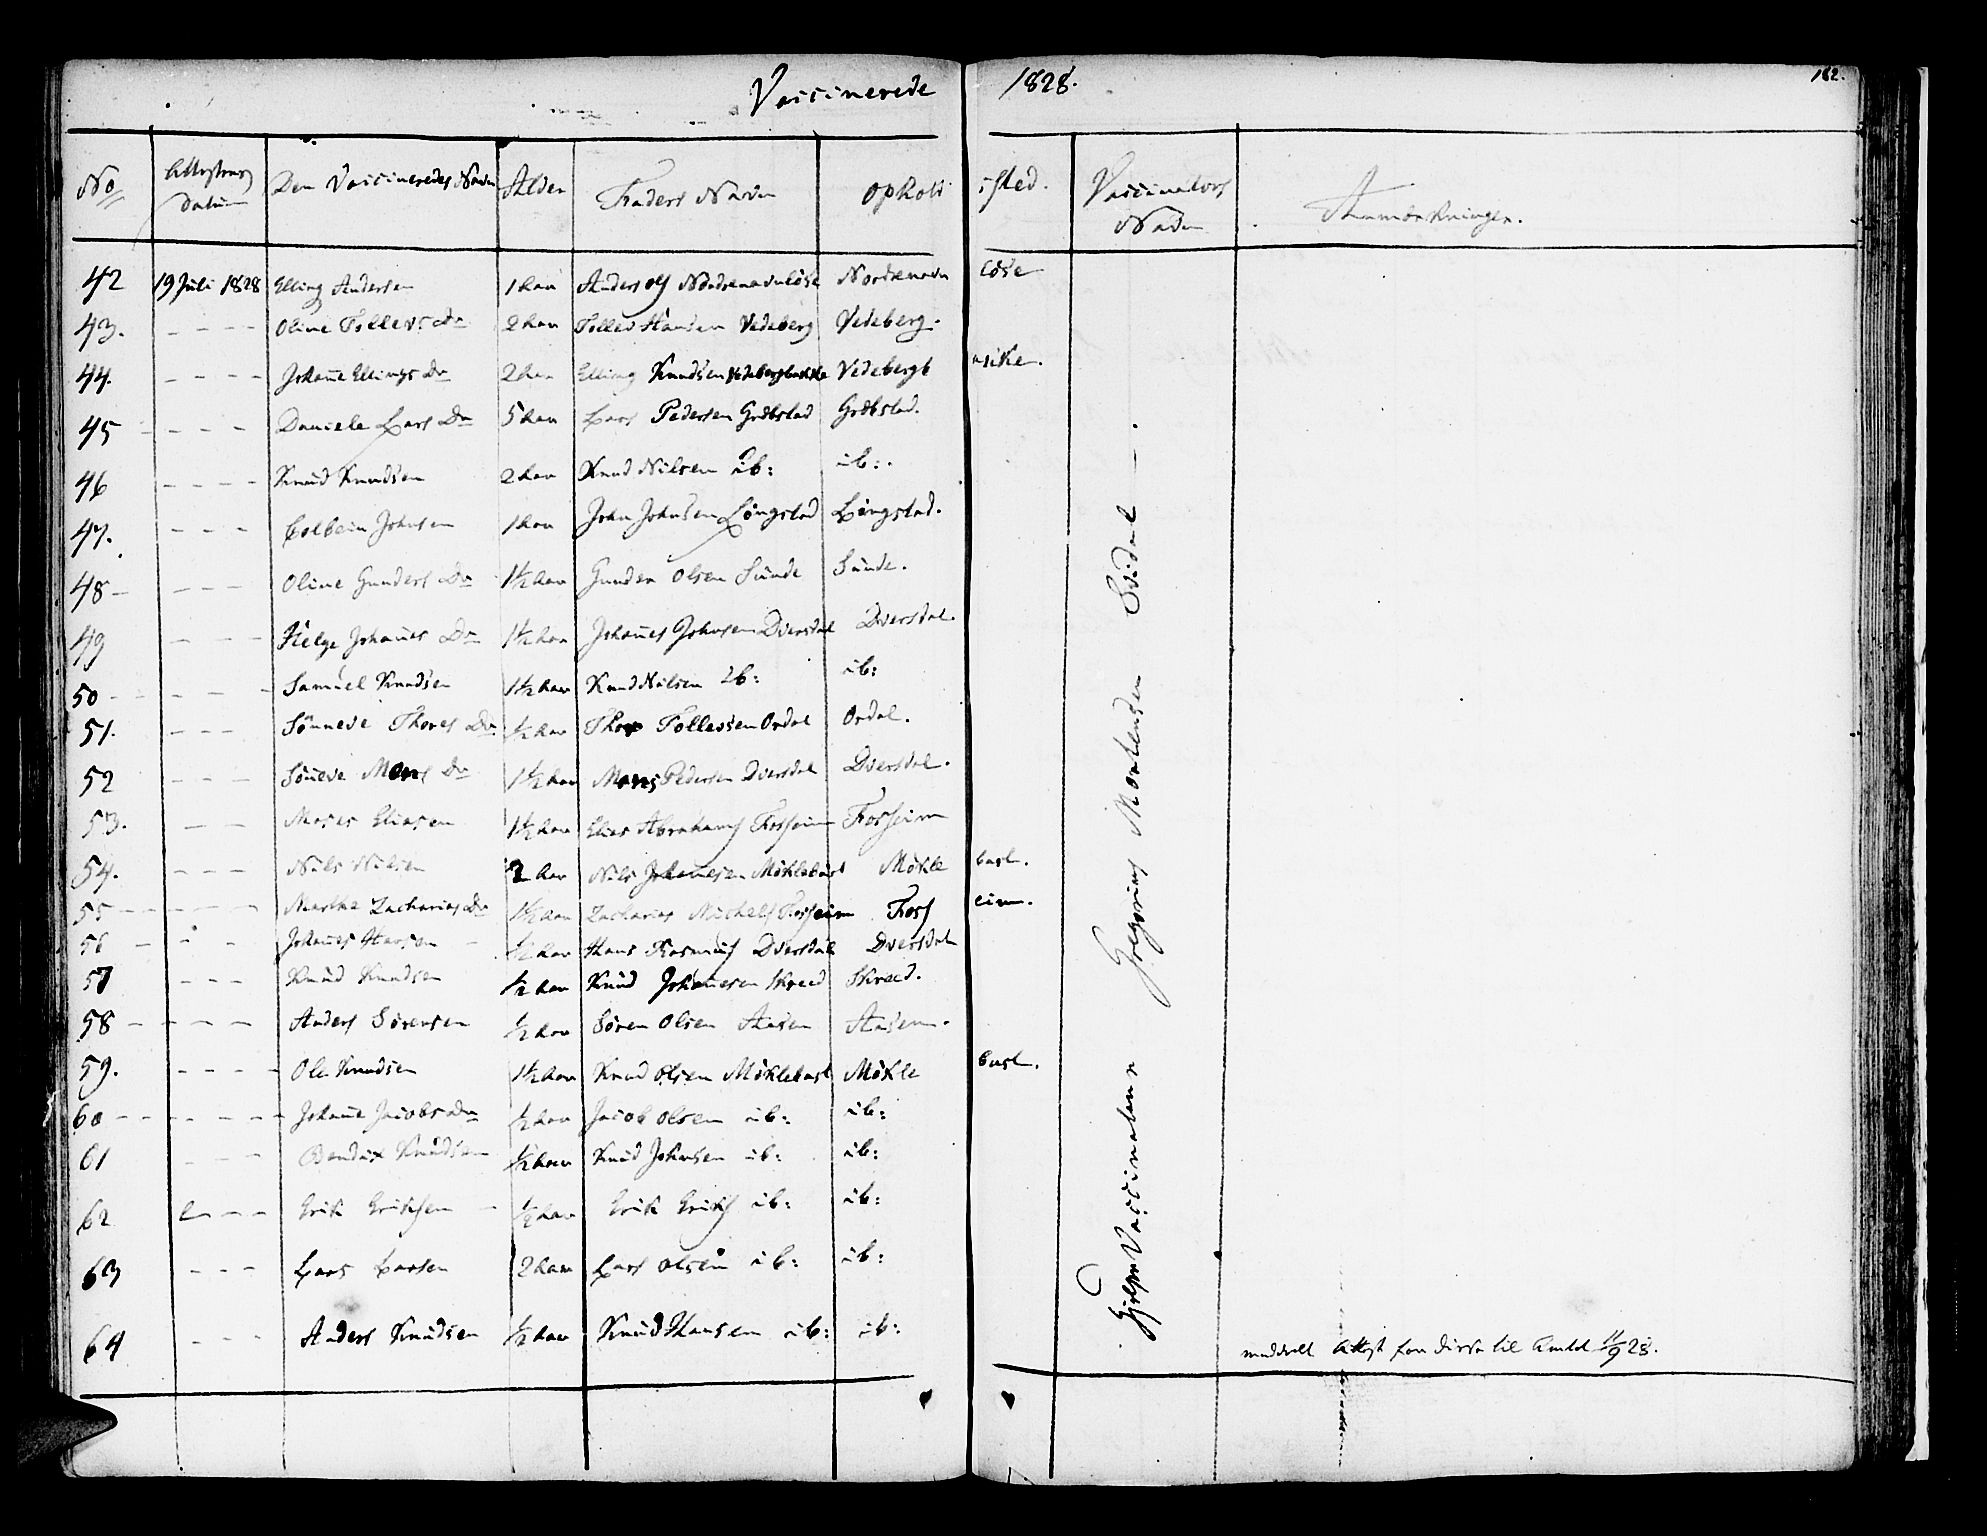 Vaccinerede 1828. 162.
No Attestens Datum Den Vaccineredes Navn Alder Faders Navn Opholdsted. Vaccinateurs Navn Anmærkninger.
42 19 Juli 1828 Elling Andersen 1 Aar Anders Ols Nordrenavnløse Nordrenavnløse
43. - - - - Oline Tollevs Dr 2 Aar Tollev Hansen Vedeberg Vedeberg.
44. - - - - Johane Ellings Dr 2 Aar Elling Knudsen Vedebergbakke Vedebergbakke.
45 - - - - Daniele Lars Dr 5 Aar Lars Pedersen Grøbstad Grøbstad.
46 - - - - Knud Knudsen 2 Aar Knud Nilsen ib: ib:.
47. - - - Colbein Johnsen 1 Aar John Johnsen Løngstad Løngstad.
48 - - - - Oline Gunders Dr 1½ Aar Gunder Olsen Sunde Sunde.
49 - - - - Helge Johanes Dr 1½ Aar Johanes Johnsen Dversdal Dversdal.
50 - - - - Samuel Knudsen 1½ Aar Knud Nilsen ib: ib:
51. - - - Sønneve Thores Dr ½ Aar Thor Tollevsen Ordal Ordal.
52 - - - Søneve Mons Dr 1½ Aar Mons Pedersen Dversdal Dversdal.
53. - - Moses Eliasen 1½ Aar Elias Abrahams Fosheim Fosheim
54. - - - Nils Nilsen 2 Aar Nils Johanesen Møklebust Møklebust.
55 - - - - Marthe Zacharias Dr 1½ Aar Zacharias Michels Fosheim Fosheim.
56 - - - Johanes Hansen ½ Aar Hans Rasmus Dversdal Dversdal
57 - - - Knud Knudsen ½ Aar Knud Johanesen Skreed Skreed.
58 - - - - Anders Sørensen ½ Aar Søren Olsen Aasen Aasen.
59. - - - - Ole Knudsen 1½ Aar Knud Olsen Møklebust Møklebust.
60 - - - - - Johane Jacobs Dr ½ Aar Jacob Olsen ib: ib:
61 - - - Bendix Knudsen ½ Aar Knud Johnsen ib: ib:
62 - - - Erik Eriksen ½ Aar Erik Eriks ib: ib:
63 - - - Lars Larsen 2 Aar Lars Olsen ib: ib:
64 - - - Anders Knudsen ½ Aar Knud Hansen ib: ib:
Hjelpe Vaccinateur Gregorius Mortensen
meddeelt Attest for disse til Amtet 11/9 28.